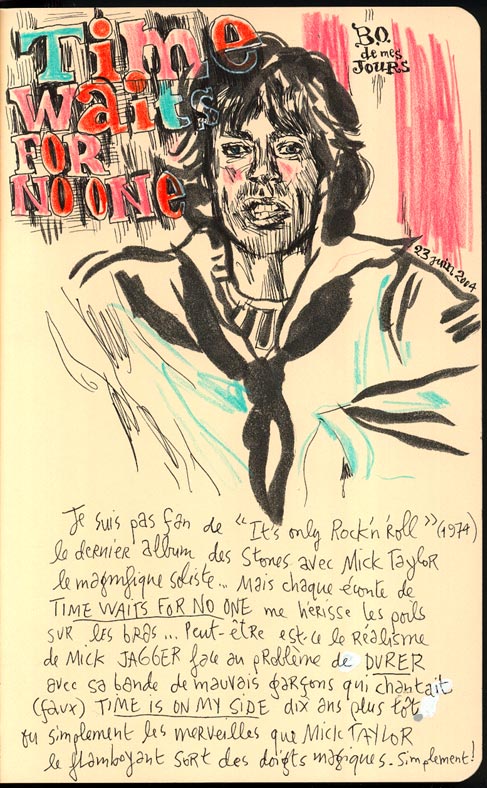 Time
waits
FOR
NO ONE
B.O.
de mes
JOURS
23 juin 2004
Je suis pas fan de "It's only Rock'n'Roll" (1974)
le dernier album des Stones avec Mick Taylor
le magnifique soliste... Mais chaque écoute de
TIME WAITS FOR NO ONE me hérisse les poils
sur les bras... Peut-être est-ce le réalisme
de Mick JAGGER face au problème de DURER
avec sa bande de mauvais garçons qui chantait
(faux) TIME IS ON MY SIDE dix ans plus tôt
ou simplement les merveilles que Mick TAYLOR
le flamboyant sort des doigts magiques. Simplement!